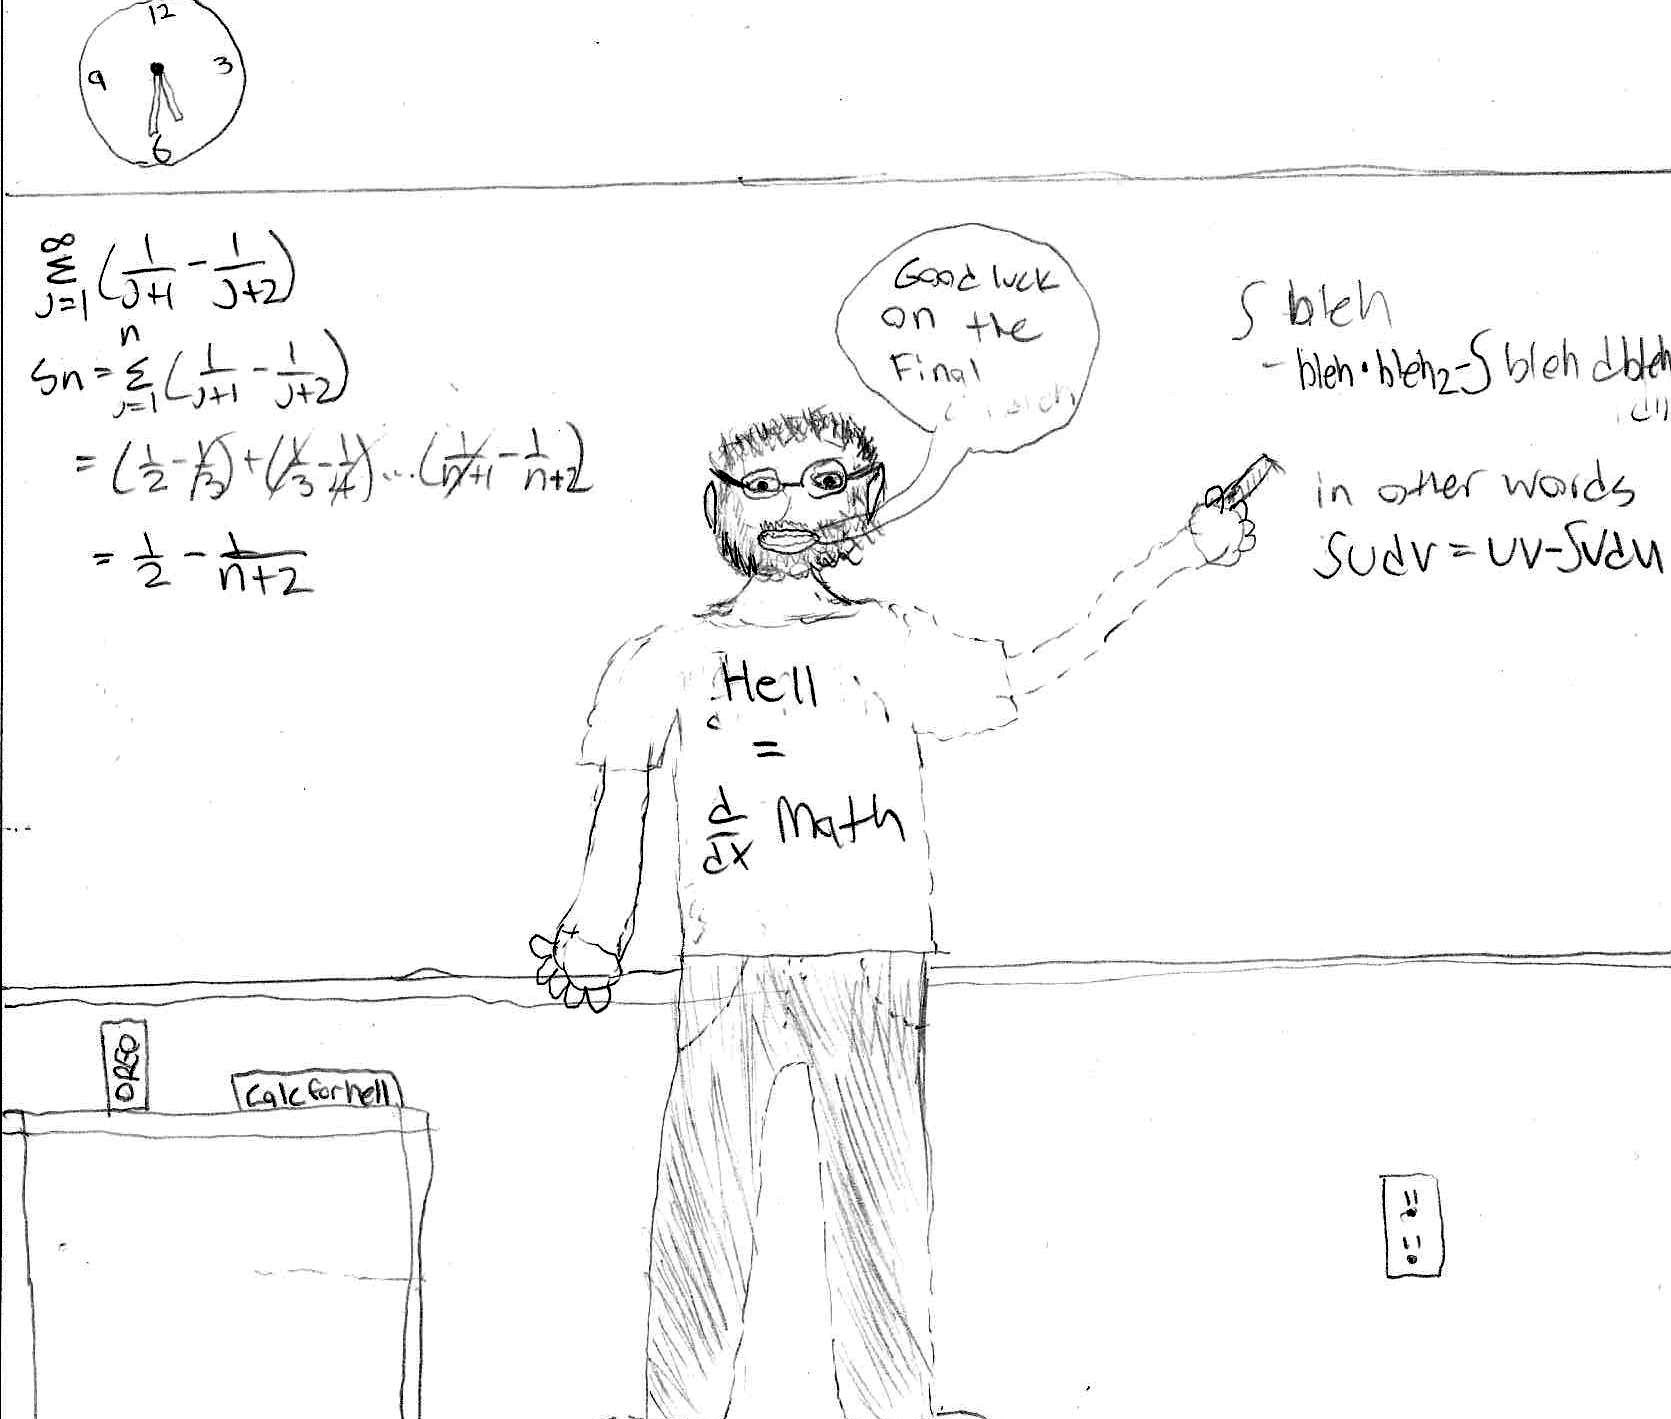 12
9 3
6
∞
Σ (1/(J+1) - 1/(J+2))
J=1
n
Sn = Σ (1/(J+1) - 1/(J+2))
J=1
= (1/2 - 1/3) + (1/3 - 1/4) ... (1/(n+1) - 1/(n+2))
= 1/2 - 1/(n+2)
Good luck
on the
Final
∫ bleh
- bleh · bleh2 - ∫ bleh dbleh
in other words
∫udv = uv - ∫vdu
Hell
=
d/dx Math
OREO
Calc for hell